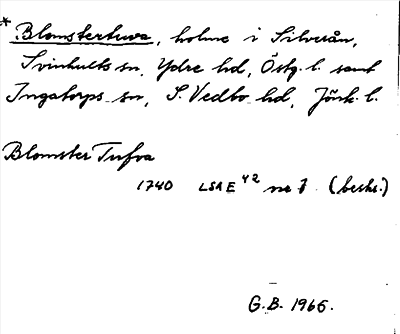 * Blomstertuva, holme i Silverån,
Svinhults sn, Ydre hd, Östg. l. samt
Ingatorps sn, S. Vedbo hd, Jönk. l.
Blomster Tufva
1740 LSA E 42 nr 1 (beskr.)
G.B. 1965.